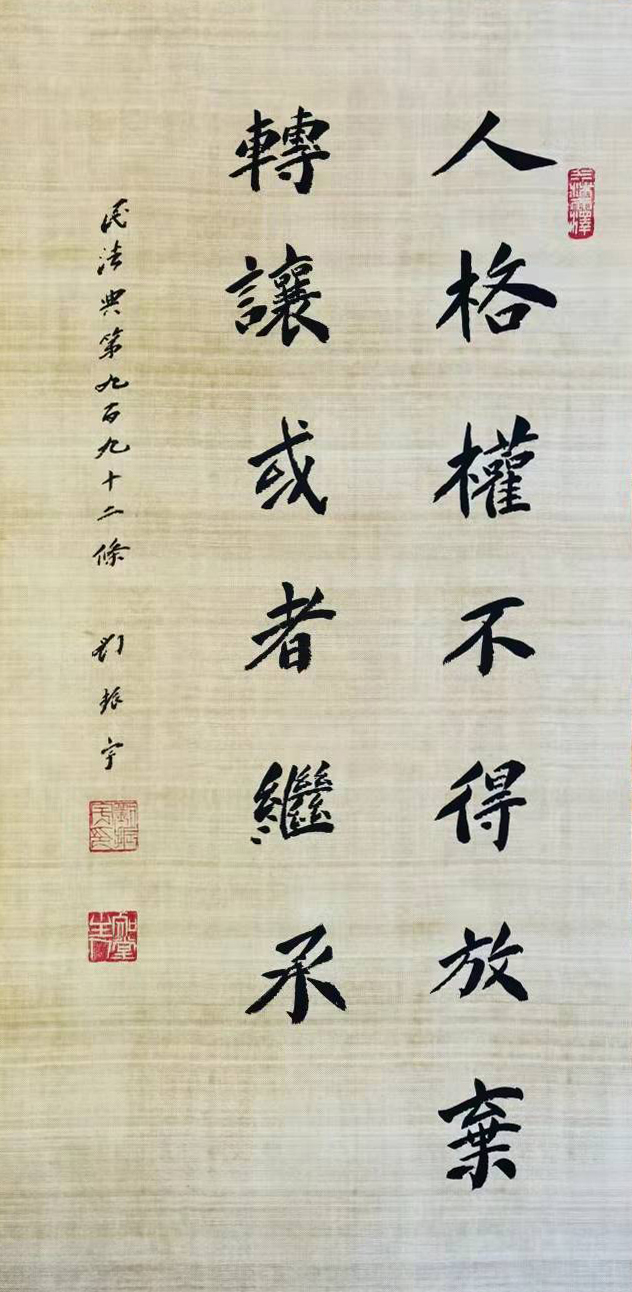 人格權不得放棄
轉讓或者繼承
民法典第九百九十二條 劉振宇